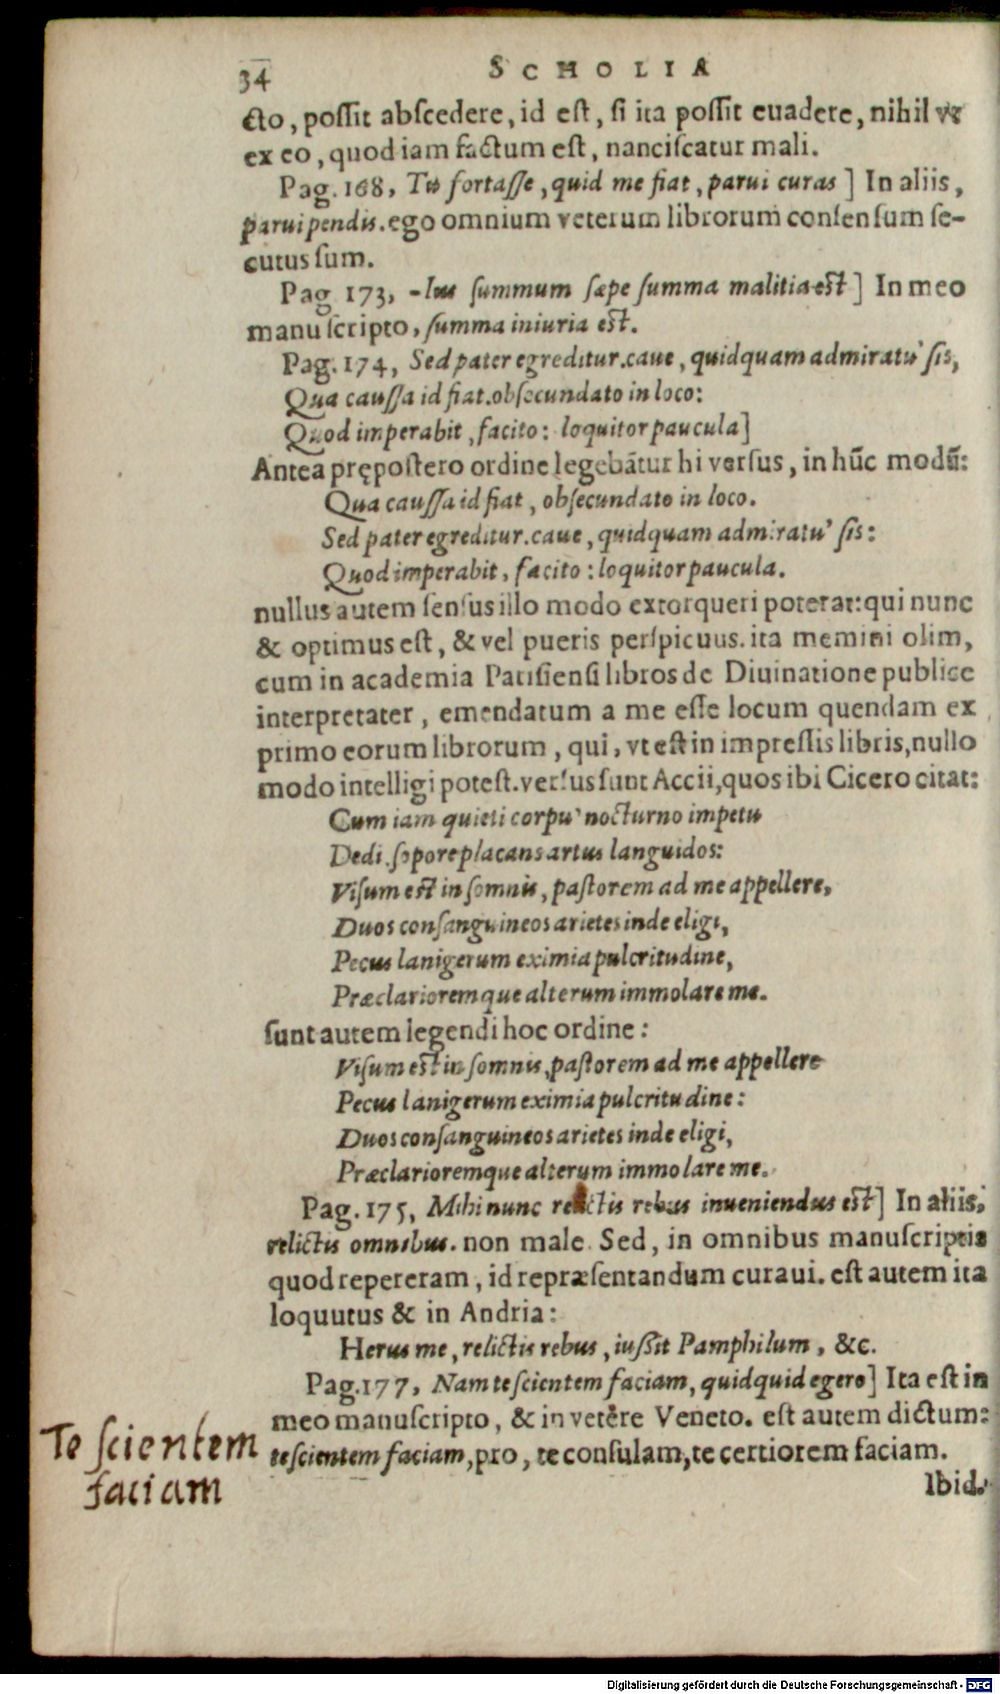 34 SCHOLIA
cto, possit abscedere, id est, si ita possit euadere, nihil vt
ex eo, quod iam factum est, nanciscatur mali.
Pag. 168, Tu fortasse, quid me fiat, parui curas] In aliis,
parui pendis. ego omnium veterum librorum consensum se-
cutus sum.
Pag 173, -Ius summum sæpe summa malitia est] In meo
manuscripto, summa iniuria est.
Pag. 174, Sed pater egreditur. caue, quidquam admiratu' sis,
Qua caussa id fiat. obsecundato in loco:
Quod imperabit, facito: loquitor paucula]
Antea prępostero ordine legebātur hi versus, in hūc modū:
Qua caussa id fiat, obsecundato in loco.
Sed pater egreditur. caue, quidquam admiratu' sis:
Quod imperabit, facito: loquitor paucula.
nullus autem sensus illo modo extorqueri poterat: qui nunc
& optimus est, & vel pueris perspicuus. ita memini olim,
cum in academia Parisiensi libros de Diuinatione publice
interpretater, emendatum a me esse locum quendam ex
primo eorum librorum, qui, vt est in impressis libris, nullo
modo intelligi potest. versus sunt Accii, quos ibi Cicero citat:
Cum iam quieti corpu' nocturno impetu
Dedi, sopore placans artus languidos:
Visum est in somnis, pastorem ad me appellere,
Duos consanguineos arietes inde eligi,
Pecus lanigerum eximia pulcritudine,
Præclarioremque alterum immolare me.
sunt autem legendi hoc ordine:
Visum est in somnis, pastorem ad me appellere
Pecus lanigerum eximia pulcritudine:
Duos consanguineos arietes inde eligi,
Præclarioremque alterum immolare me.
Pag. 175, Mihi nunc relictis rebus inueniendus est] In aliis,
relictis omnibus. non male. Sed, in omnibus manuscriptis
quod repereram, id repræsentandum curaui. est autem ita
loquutus & in Andria:
Herus me, relictis rebus, iussit Pamphilum, &c.
Pag. 177, Nam te scientem faciam, quidquid egero] Ita est in
meo manuscripto, & in vetere Veneto. est autem dictum:
te scientem faciam, pro, te consulam, te certiorem faciam.
Te scientem
faciam
Ibid.
Digitalisierung gefördert durch die Deutsche Forschungsgemeinschaft - DFG